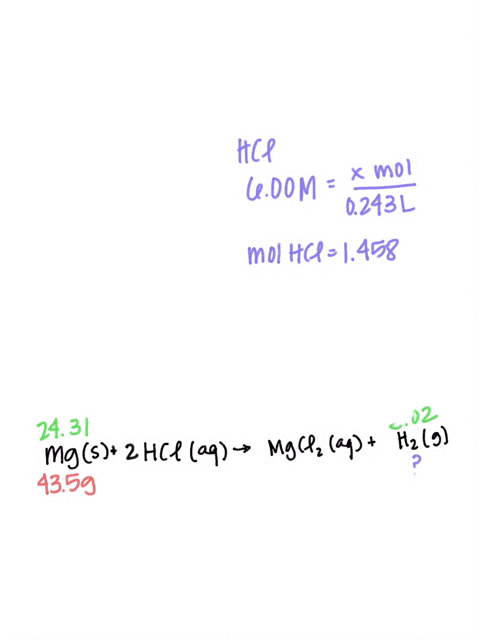 HCl
6.00M = x mol / 0.243L
mol HCl = 1.458
24.31 .02
Mg(s) + 2HCl(aq) → MgCl₂(aq) + H₂(g)
43.5g ?